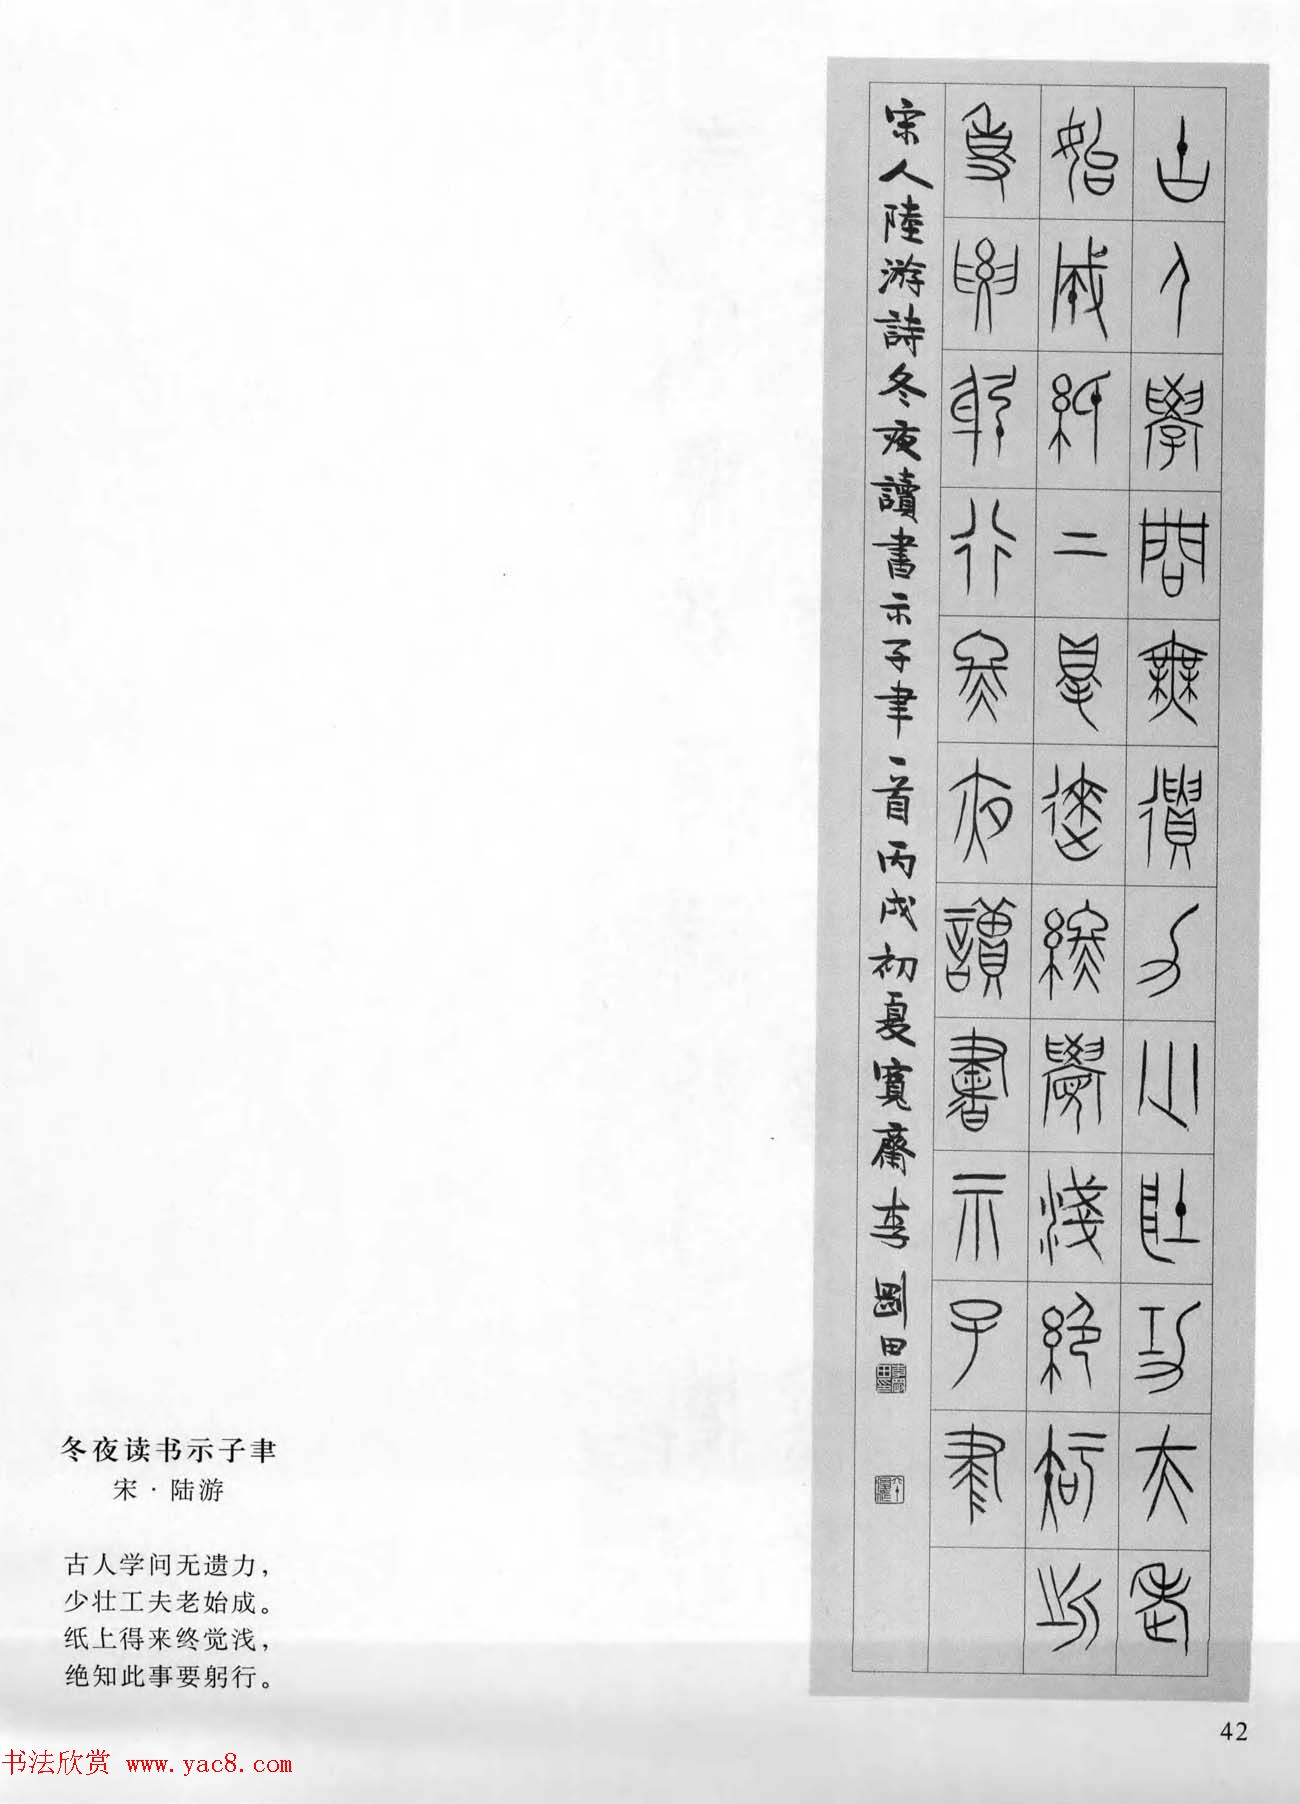 古人學問無遺力少壯工夫老
始成紙上得來終覺淺絕知此
事要躬行冬夜讀書示子聿
宋人陸游詩冬夜讀書示子聿一首丙戌初夏寬齋李剛田
冬夜读书示子聿
宋·陆游
古人学问无遗力，
少壮工夫老始成。
纸上得来终觉浅，
绝知此事要躬行。
42
书法欣赏 www.yac8.com